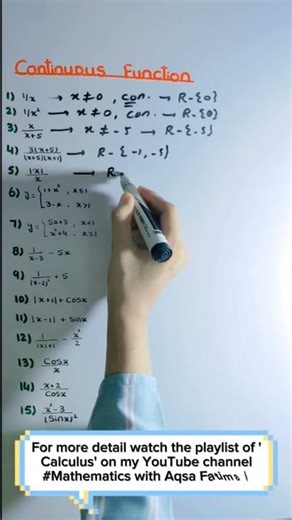 Continuous Function
1) 1/x → x ≠ 0 , con. → R-{0}
2) 1/x² → x ≠ 0, con. → R-{0}
3) x/(x+5) → x ≠ -5 → R-{-5}
4) 3(x+5)/((x+5)(x+1)) → R-{-1,-5}
5) |x|/x → R-
6) y = { 1+x², x≤1
3-x, x>1
7) y = { 5x+3, x<1
x²+4, x≥1
8) 1/(x-3) - 5x
9) 1/(x-2)² + 5
10) |x+1| + Cosx
11) |x-1| + Sinx
12) 1/(|x|+1) - x²/2
13) Cosx/x
14) x+2/Cosx
15) x²-3/(Sinx)²
For more detail watch the playlist of '
Calculus' on my YouTube channel
#Mathematics with Aqsa Fatima